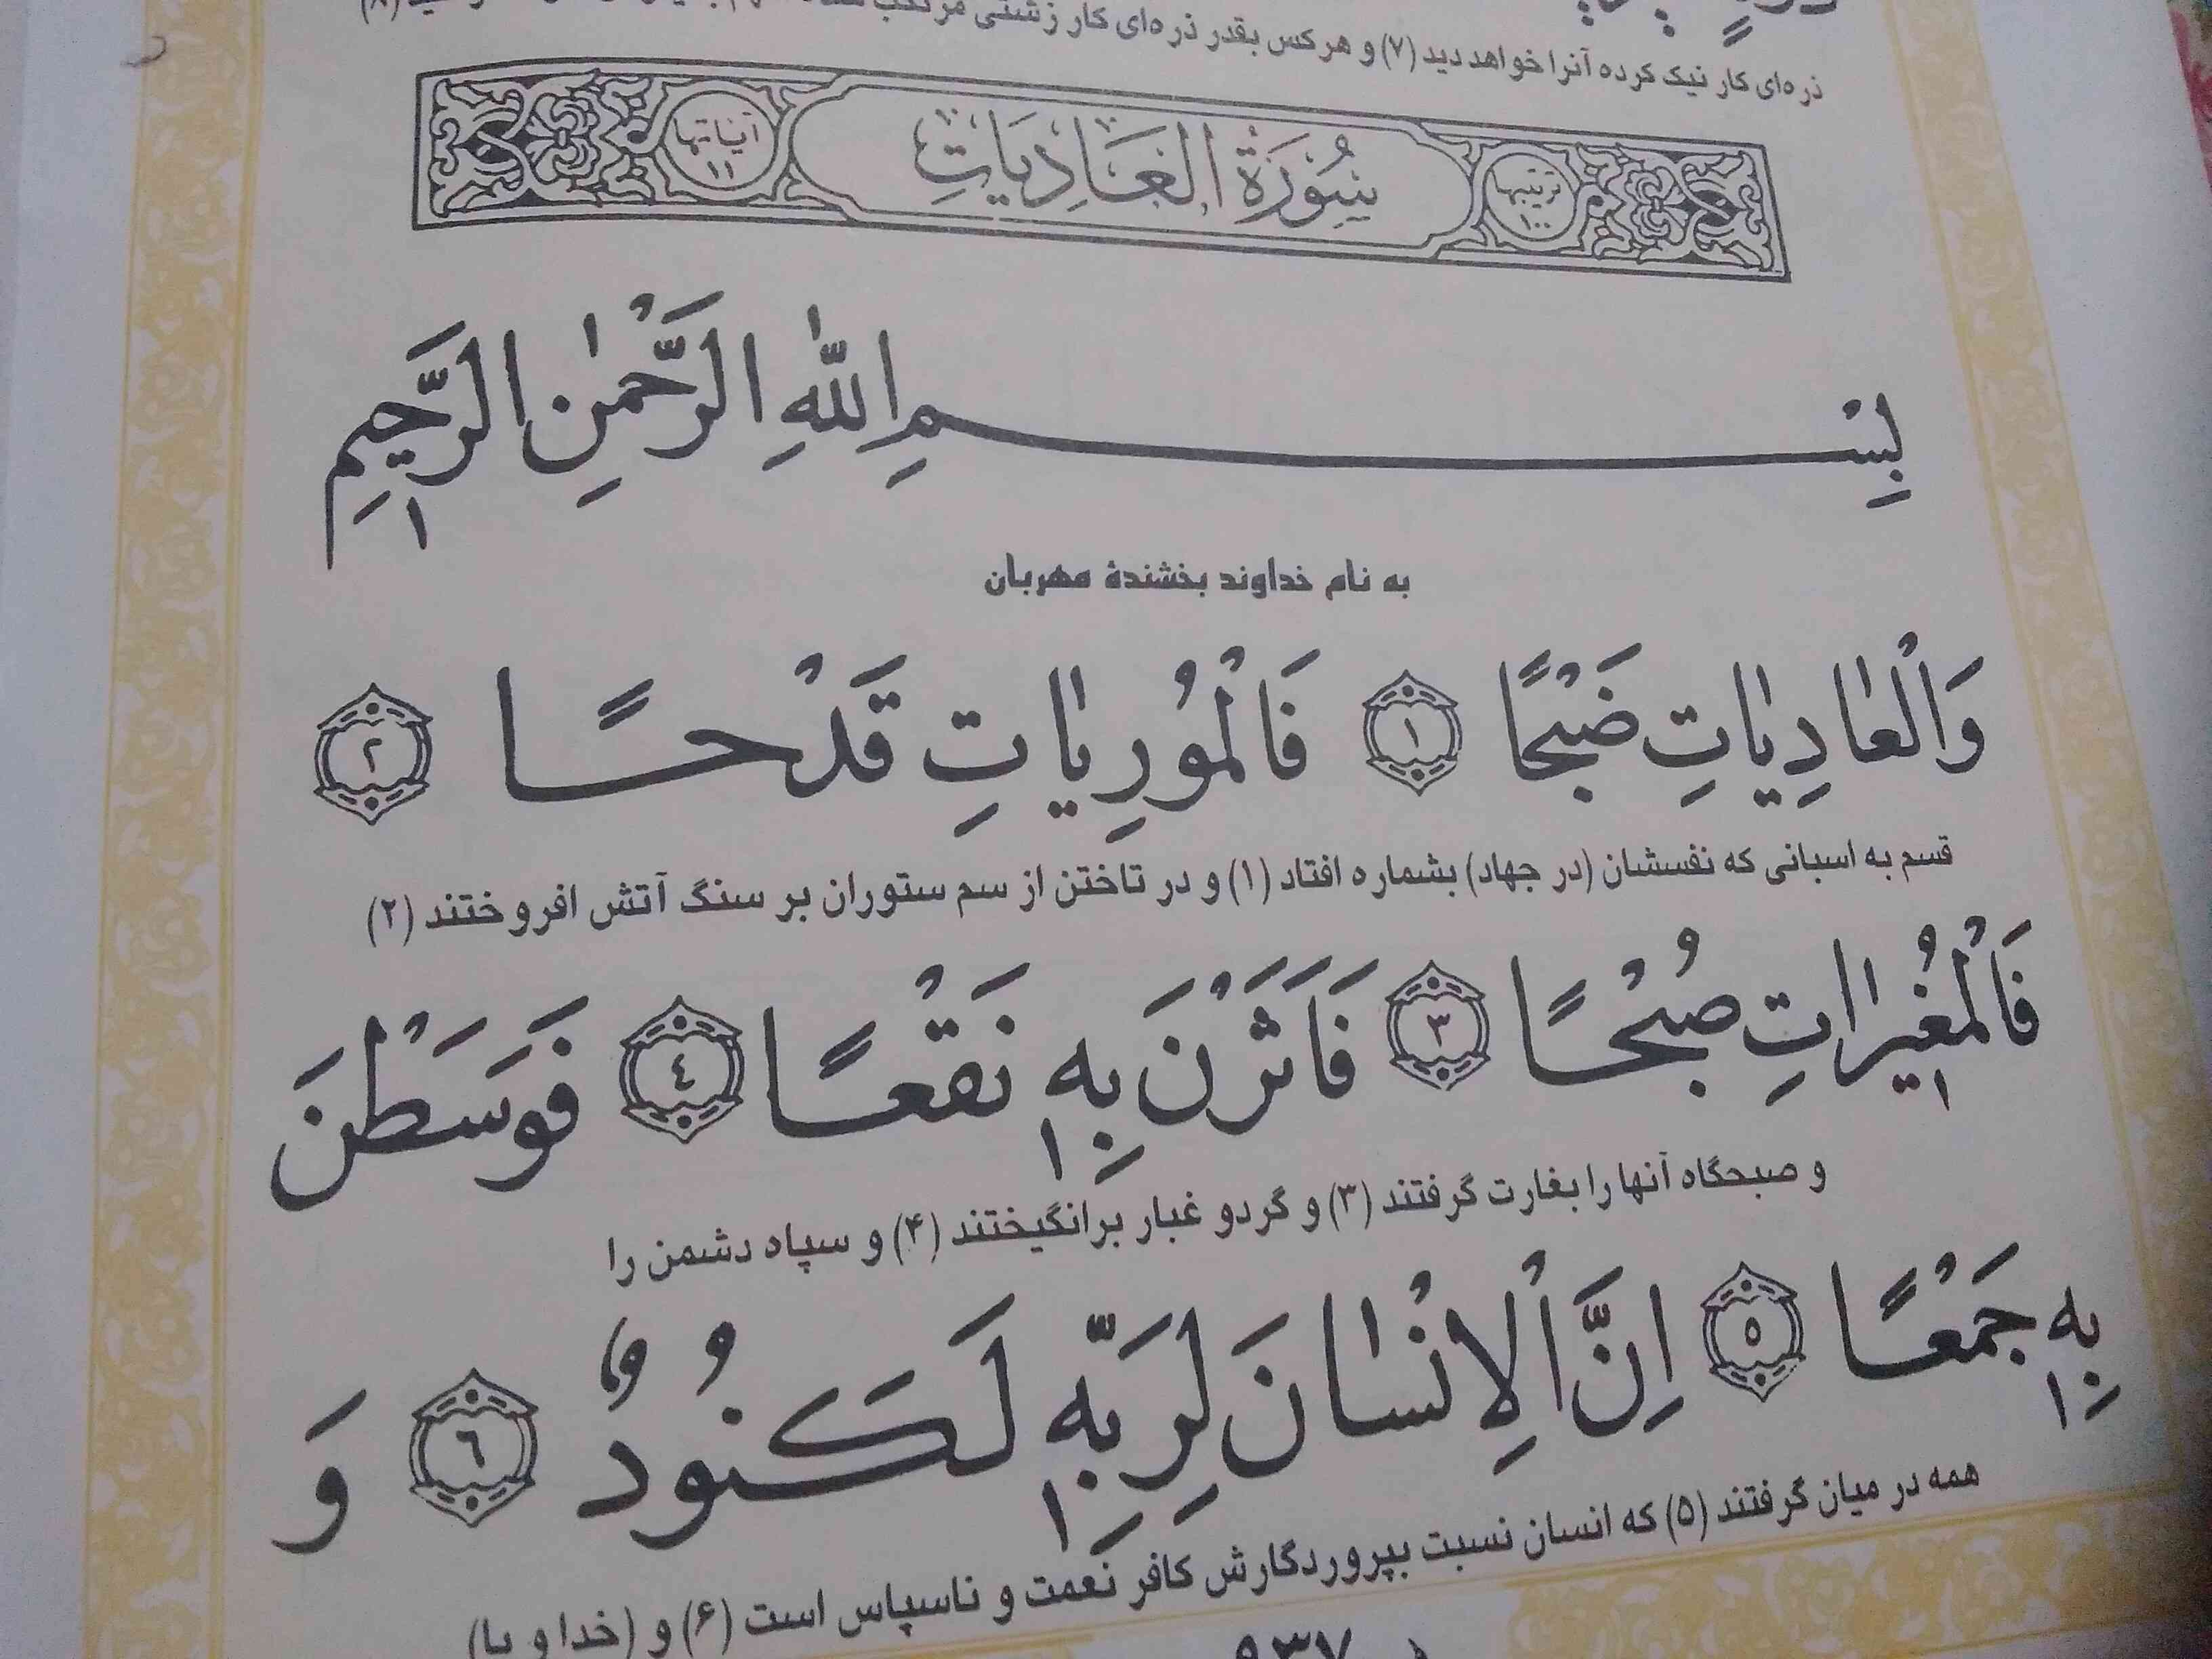 ذره‌ای کار نیک کرده آنرا خواهد دید (۷) و هر کس بقدر ذره‌ای کار زشتی مرتکب شده
ترتیبها ۱۰۰ سُورَةُ العَادِیَاتِ آیاتها ۱۱
بِسْمِ اللّٰهِ الرَّحْمٰنِ الرَّحِیمِ
به نام خداوند بخشندهٔ مهربان
وَالْعٰادِیٰاتِ ضَبْحًا ۱ فَالْمُورِیٰاتِ قَدْحًا ۲
قسم به اسبانی که نفسشان (در جهاد) بشماره افتاد (۱) و در تاختن از سم ستوران بر سنگ آتش افروختند (۲)
فَالْمُغیرٰاتِ صُبْحًا ۳ فَاَثَرْنَ بِهِ نَقْعًا ٤ فَوَسَطْنَ
و صبحگاه آنها را بغارت گرفتند (۳) و گرد و غبار برانگیختند (۴) و سپاه دشمن را
بِهِ جَمْعًا ۵ اِنَّ الْاِنْسٰانَ لِرَبِّهِ لَکَنُودٌ ٦ وَ
همه در میان گرفتند (۵) که انسان نسبت بپروردگارش کافر نعمت و ناسپاس است (۶) و (خدا و یا)
۹۳۷